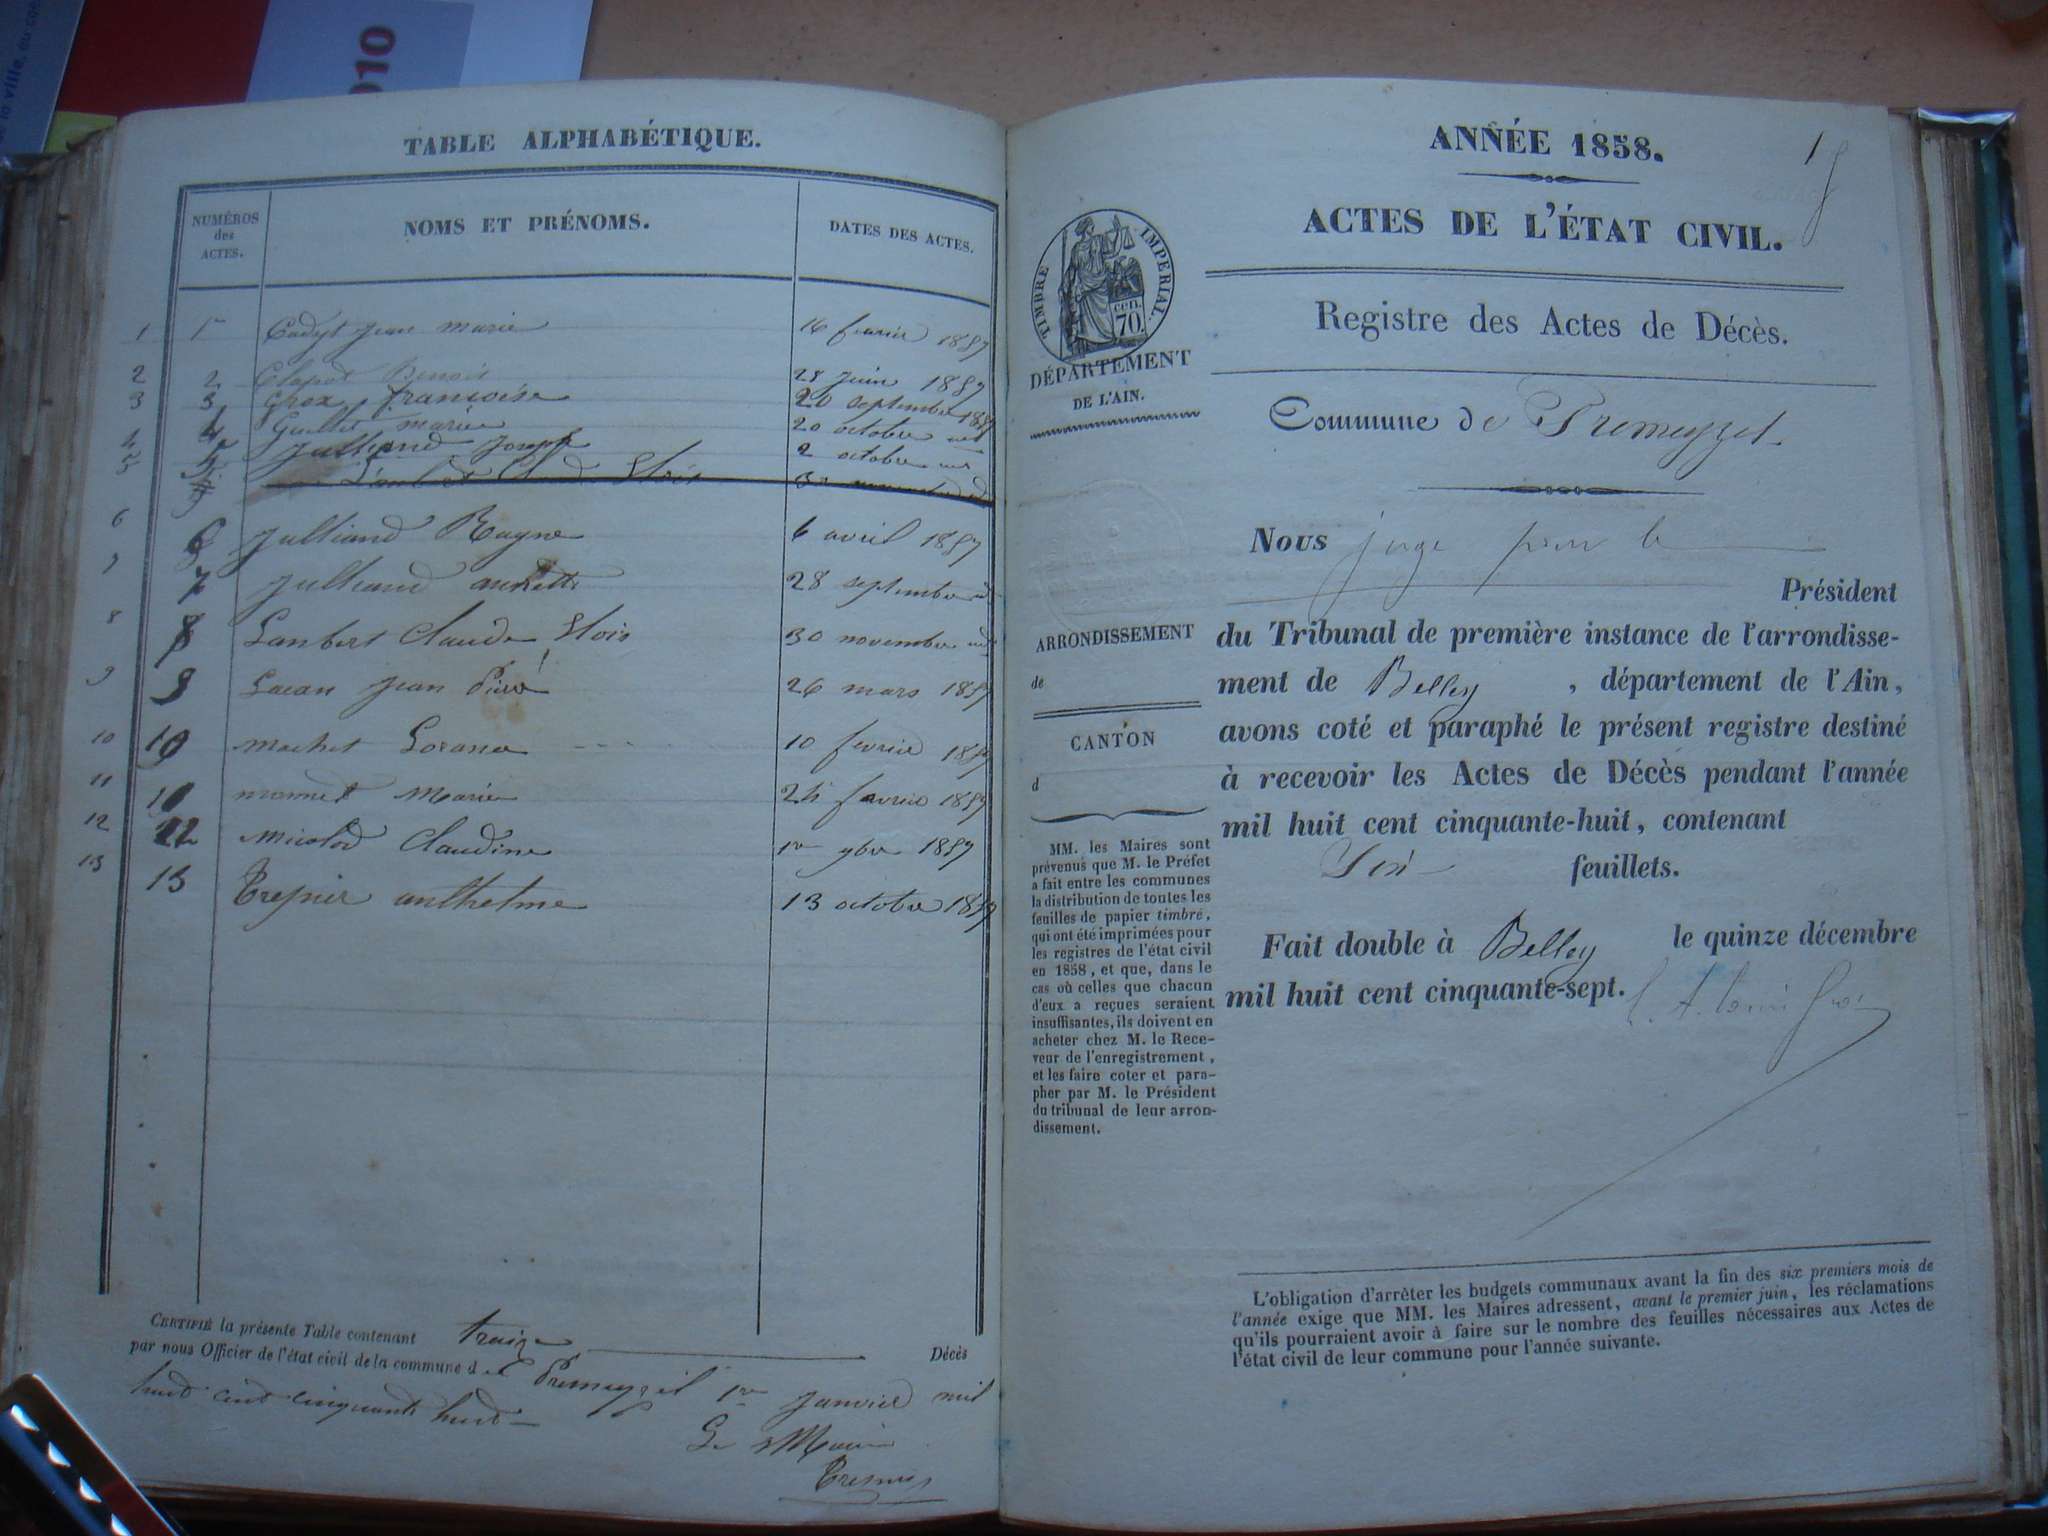 010
TABLE ALPHABÉTIQUE.
NUMÉROS
des
ACTES.
NOMS ET PRÉNOMS.
DATES DES ACTES.
1 1er jean marie 16 fevrier 1857
2 2 Clapot Benoit 28 juin 1857
3 3 françoise 20 septembre 1857
4 4 Guillet marie 20 octobre
5 5 Julliand Joseph 2 octobre
Lambert Claude Elois
6 6 Julliand 6 avril 1857
7 7 Julliand annette 28 septembre
8 8 Lambert Claude Elois 30 novembre
9 9 jean Pierre 26 mars 1857
10 10 machet 10 fevrier 1857
11 11 Marie 24 fevrier 1857
12 12 Claudine 1er 9bre 1857
13 13 Trepier anthelme 13 octobre 1857
CERTIFIÉ la présente Table contenant treize Décès
par nous Officier de l'état civil de la commune de Premeyzel 1er Janvier mil
huit cent cinquante huit
Le Maire
ANNÉE 1858.
1
ACTES DE L'ÉTAT CIVIL.
TIMBRE IMPÉRIAL.
cen.
70.
DÉPARTEMENT
DE L'AIN.
Registre des Actes de Décès.
Commune de Premeyzel
Nous juge pour le
Président
du Tribunal de première instance de l'arrondisse-
ment de Belley, département de l'Ain,
avons coté et paraphé le présent registre destiné
à recevoir les Actes de Décès pendant l'année
mil huit cent cinquante-huit, contenant
Six feuillets.
Fait double à Belley le quinze décembre
mil huit cent cinquante-sept.
ARRONDISSEMENT
de
CANTON
d
MM. les Maires sont
prévenus que M. le Préfet
a fait entre les communes
la distribution de toutes les
feuilles de papier timbré,
qui ont été imprimées pour
les registres de l'état civil
en 1858, et que, dans le
cas où celles que chacun
d'eux a reçues seraient
insuffisantes, ils doivent en
acheter chez M. le Rece-
veur de l'enregistrement,
et les faire coter et para-
pher par M. le Président
du tribunal de leur arron-
dissement.
L'obligation d'arrêter les budgets communaux avant la fin des six premiers mois de
l'année exige que MM. les Maires adressent, avant le premier juin, les réclamations
qu'ils pourraient avoir à faire sur le nombre des feuilles nécessaires aux Actes de
l'état civil de leur commune pour l'année suivante.